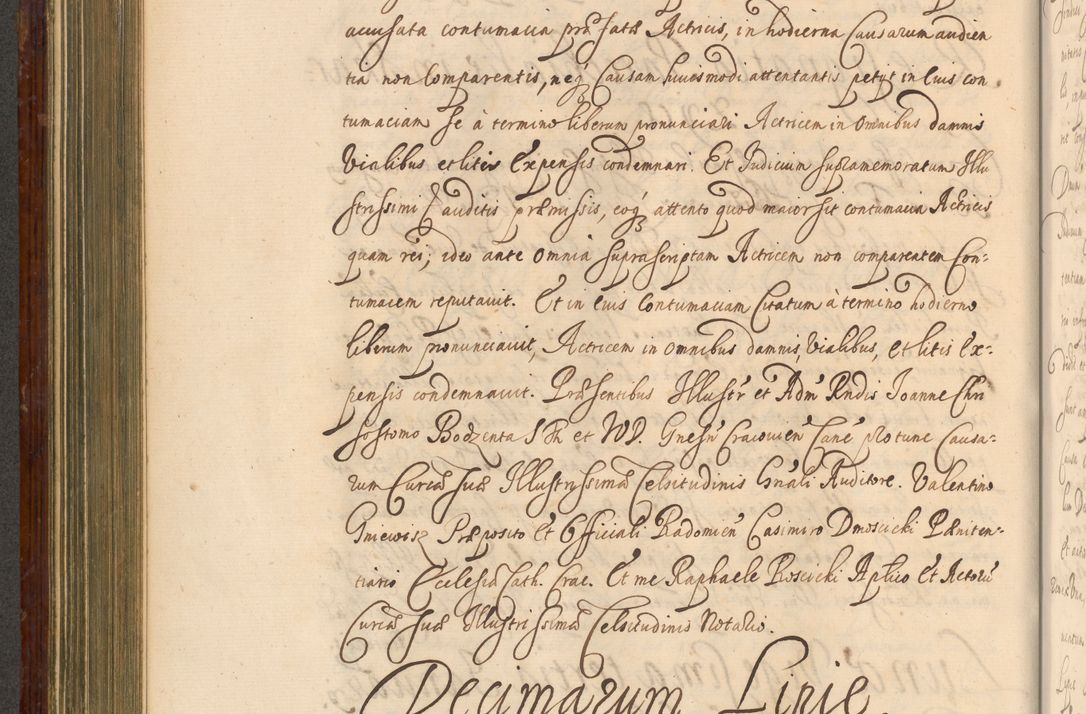 accusata contumacia præfatæ Actricis, in hodierna Causarum audien
tia non Comparentis, neq3 Causam huiusmodi attentantis petijt in Cuis con
tumaciam se à termino liberum pronunciari Actricem in omnibus damnis
Vialibus et litis Expensis condemnari. Et Judicium supramemoratum Illu
strissimi Auditis præmissis, eoq3 attento quod maior sit contumacia Actricis
quam rei; ideo ante omnia suprascriptam Actricem non comparentem Con:
tumacem reputavit. Et in Cuis Contumaciam Citatum à termino hodierno
liberum pronunciavit, Actricem in omnibus damnis, Vialibus, et litis Ex:
pensis condemnavit. Præsentibus Illustr et Adm Rndis Joanne Chri
sostomo Bodzenta S Th et VVD. Gnesn Cracovien Cane pro tunc Causa:
rum Curiæ suæ Illustrissimæ Celsitudinis Gnali Auditore. Valentino
Gniewisz Præposito et Officiali Radomien Casimiro Dmoscicki Pæniten:
tiario Ecclesiæ Cath. Crac. Et me Raphaele Roscicki Aplico et Actorū
Curiæ suæ Illustrissimæ Celsitudinis Notario.
Decimarum Lipie.